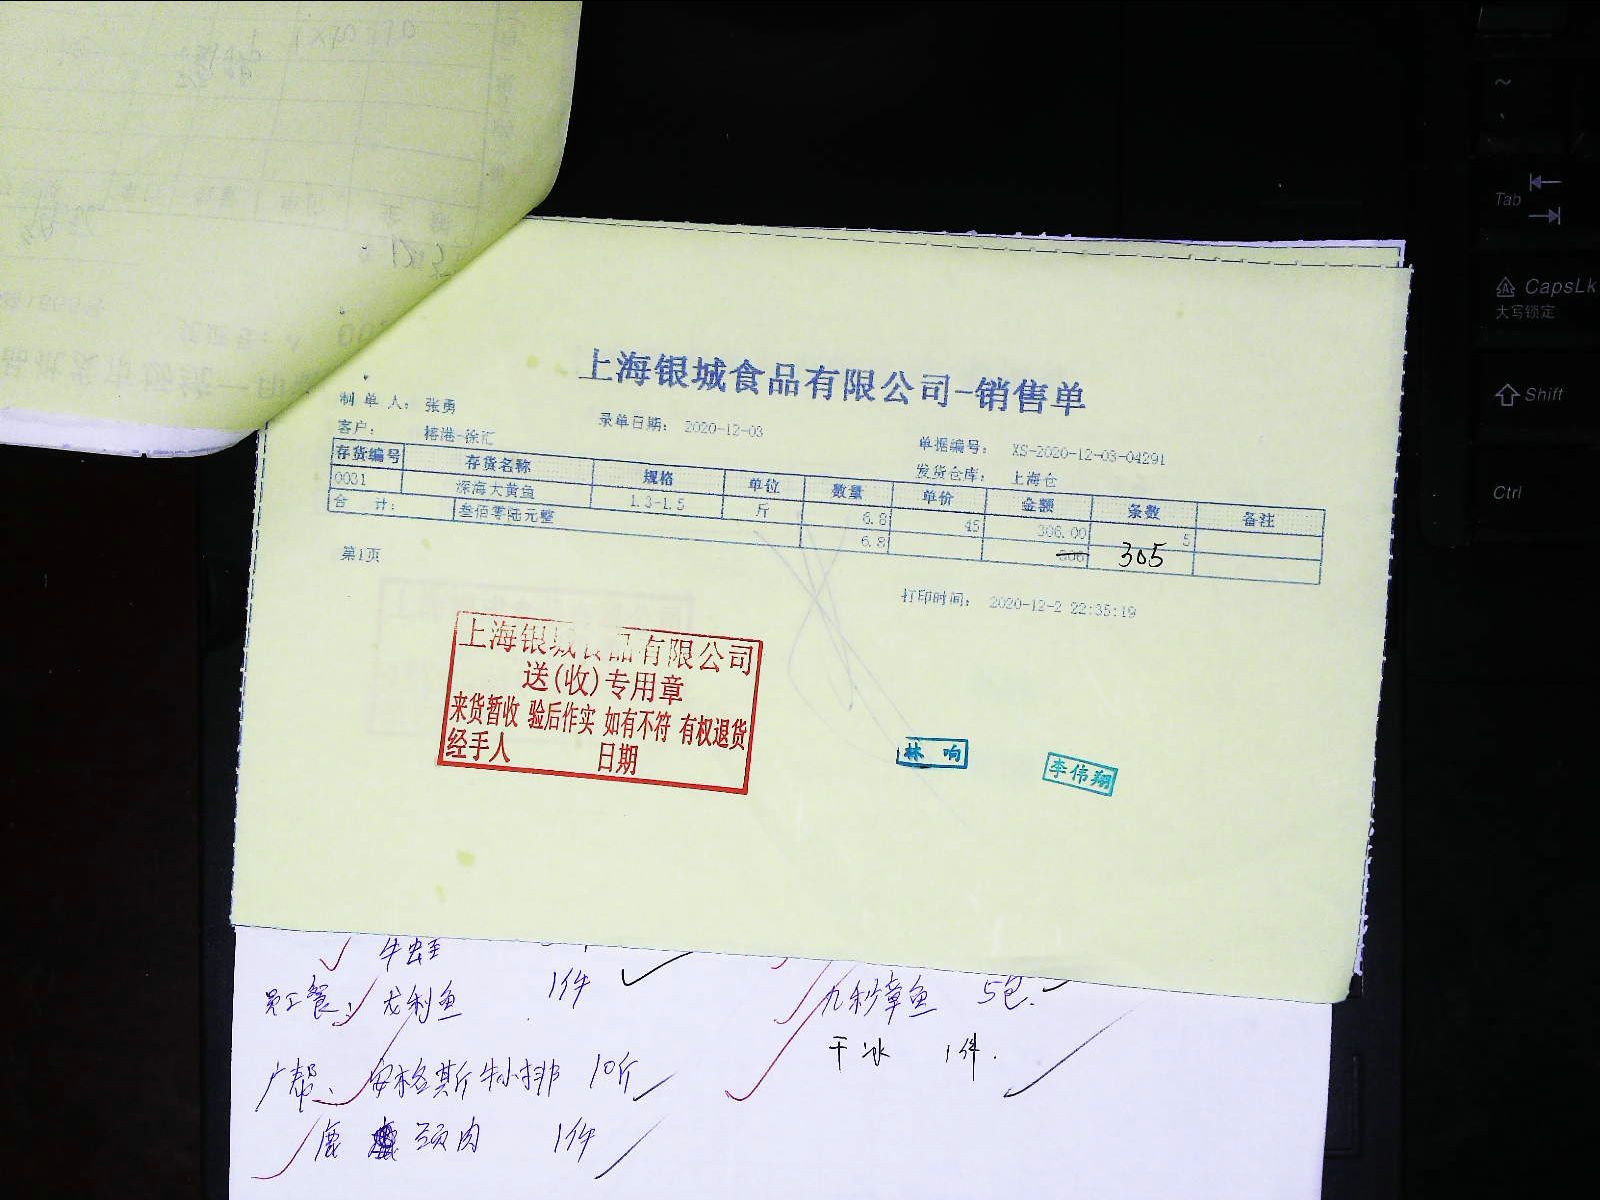 上海银城食品有限公司-销售单
制单人： 张勇
录单日期： 2020-12-03
单据编号： XS-2020-12-03-04291
客户： 榕港-徐汇
发货仓库： 上海仓
存货编号 存货名称 规格 单位 数量 单价 金额 条数 备注
0031 深海大黄鱼 1.3-1.5 斤 6.8 45 306.00 5
合 计： 叁佰零陆元整 6.8 306 305
第1页
打印时间： 2020-12-2 22:35:19
上海银城食品有限公司
送(收)专用章
来货暂收 验后作实 如有不符 有权退货
经手人 日期
林响
李伟翔
牛蛙
员工餐： 龙利鱼 1件
九秒章鱼 5包.
干冰 1件.
广帮： 安格斯牛小排 10斤
鹿 颈肉 1件
~
Tab
CapsLk
大写锁定
Shift
Ctrl